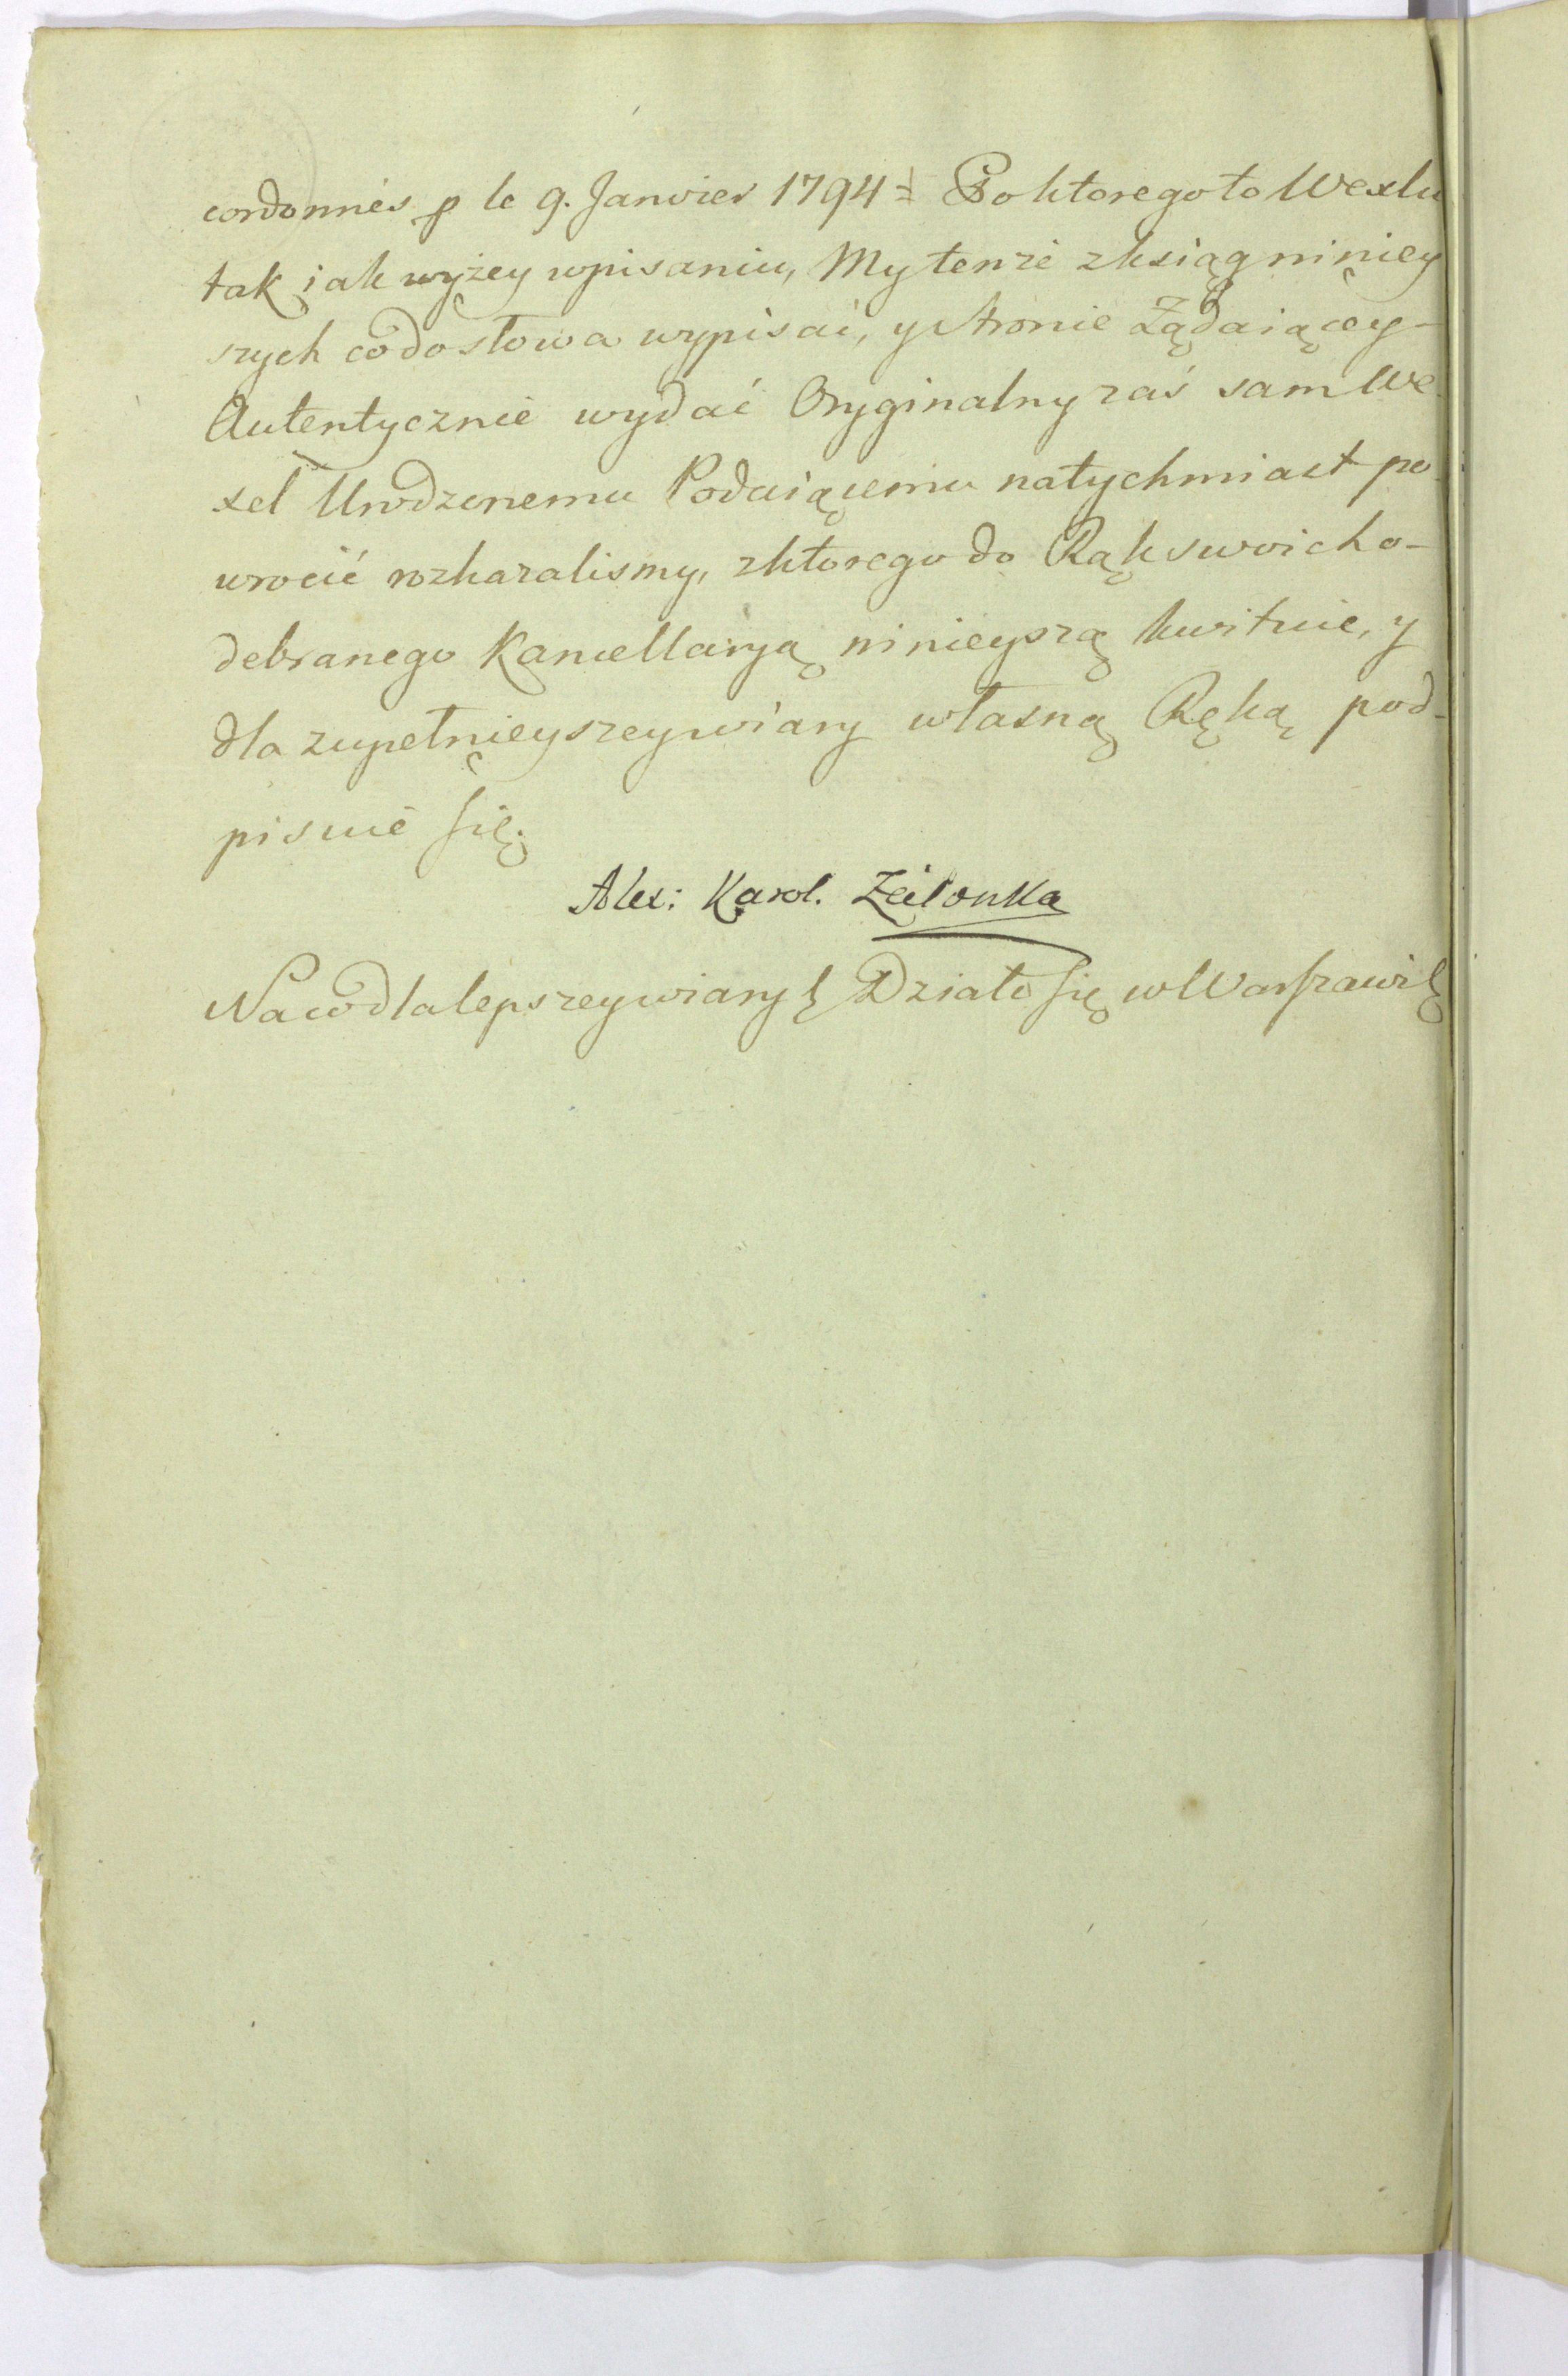 cordonnés p le 9. Janvier 1794 = Po ktorego to Wexlu
tak iak wyżey wpisaniu, My tenże z ksiąg niniey
szych co do słowa wypisać, y stronie Żądaiącey-
Autentycznie wydać Oryginalny zaś sam We-
xel Urodzonemu Podaiącemu natychmiast po-
wrocić rozkazalismy, z ktorego do Rąk swoich o-
debranego Kancellaryą ninieyszą kwituie, y
dla zupełnieyszey wiary własną Ręką pod-
pisuie się.
Alex: Karol.
Na co dla lepszey wiary Działo się w Warszawie